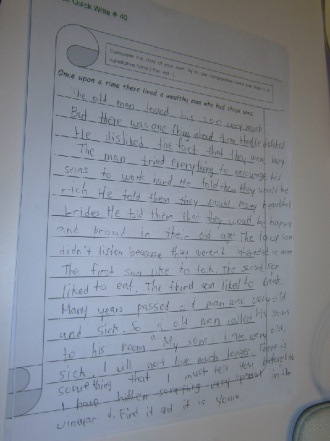 Quick Write # 40
Once upon a time there lived a wealthy man who had three sons.
The old man loved his son very much
But there was one thing about them that he disliked
He disliked the fact that they were lazy
The man tried everything to encourage his
sons to work hard. He told them they would be
rich He told them they would marry beautiful
brides He told them that they would be happier
and proud in their old age The lazy son
didn't listen because they weren't interested
The first son like to The second son
liked to eat. The third son liked to drink
Many years passed man was very old
and sick. So old men called his sons
to his room " My sons, I am very old,
sick. I will not live much longer. There is
something that I must tell you
I have hidden something very special in the
vineyard. Find it and it is yours.